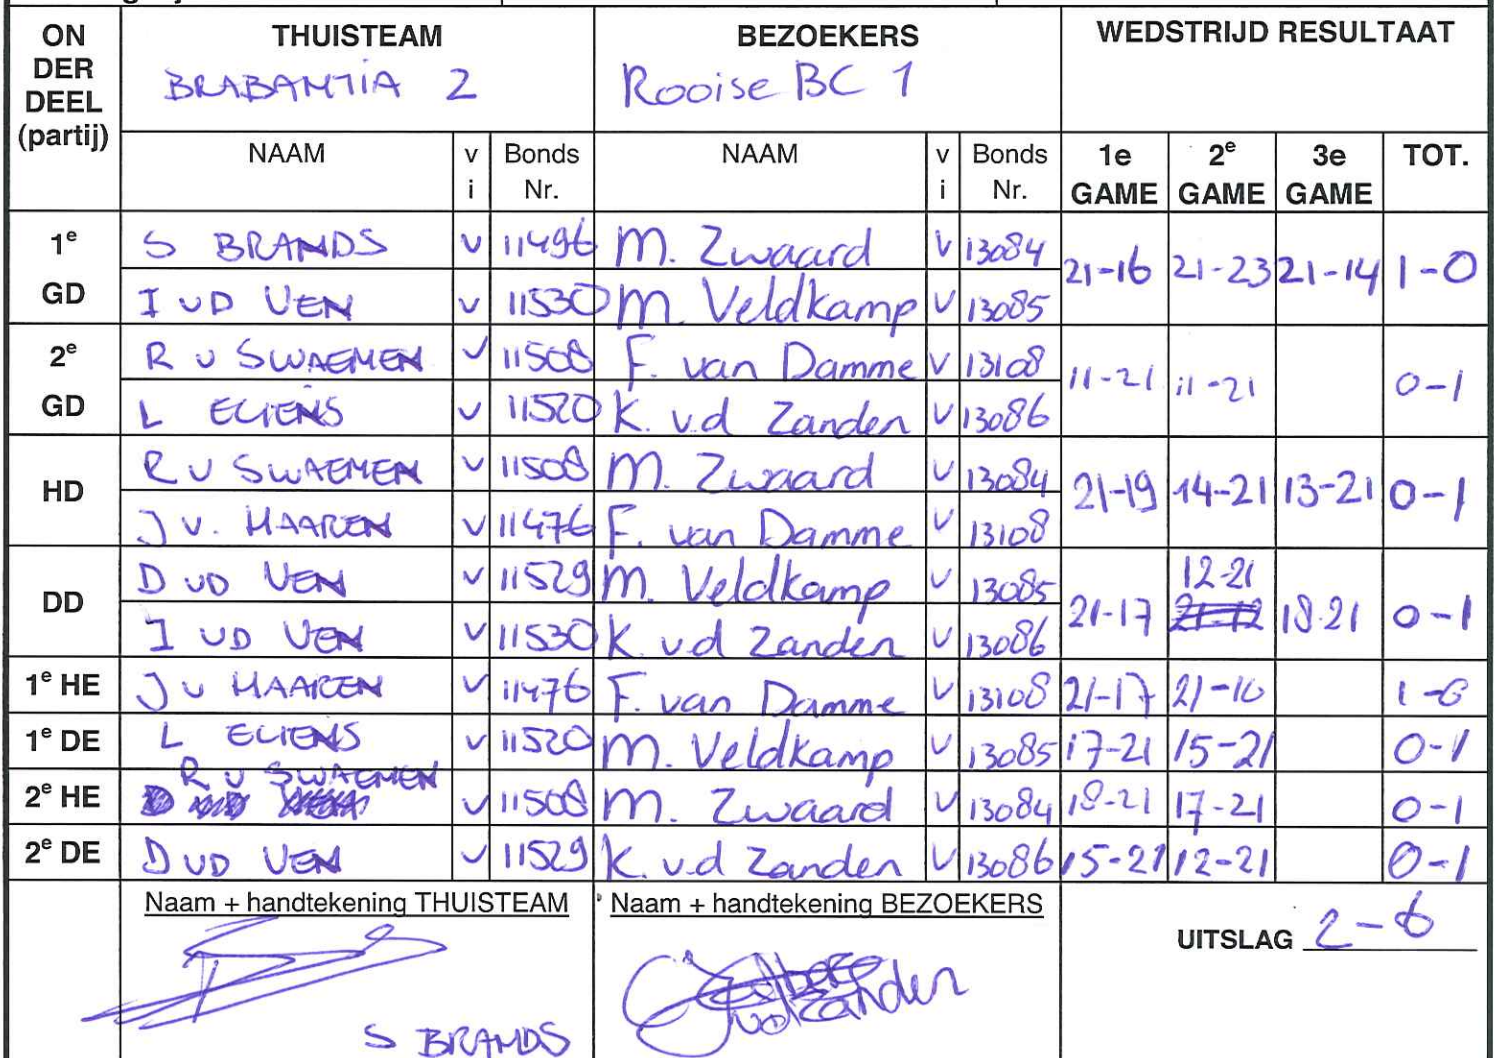 ON DER DEEL (partij) THUISTEAM BEZOEKERS WEDSTRIJD RESULTAAT
BRABANTIA 2 Rooise BC 1
NAAM v i Bonds Nr. NAAM v i Bonds Nr. 1e GAME 2e GAME 3e GAME TOT.
1e GD S BRANDS v 11496 M. Zwaard v 13084 21-16 21-23 21-14 1-0
I VD VEN v 11530 M. Veldkamp v 13085
2e GD R V SWAEMEN v 11508 F. van Damme v 13108 11-21 11-21 0-1
L ECIENS v 11520 K. v.d Zanden v 13086
HD R V SWAEMEN v 11508 M. Zwaard v 13084 21-19 14-21 13-21 0-1
J V. HAAREN v 11476 F. van Damme v 13108
DD D VD VEN v 11529 M. Veldkamp v 13085 21-17 12-21 18-21 0-1
I VD VEN v 11530 K. v.d Zanden v 13086
1e HE J V HAAREN v 11476 F. van Damme v 13108 21-17 21-10 1-0
1e DE L ECIENS v 11520 M. Veldkamp v 13085 17-21 15-21 0-1
2e HE R V SWAEMEN v 11508 M. Zwaard v 13084 18-21 17-21 0-1
2e DE D VD VEN v 11529 K. v.d Zanden v 13086 15-21 12-21 0-1
Naam + handtekening THUISTEAM Naam + handtekening BEZOEKERS
UITSLAG 2-6
vd Zanden
S BRANDS